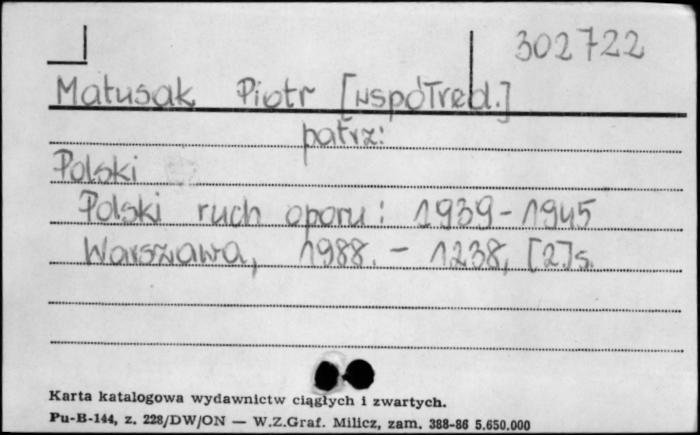 302722
Matusak Piotr [współred.]
patrz:
Polski
Polski ruch oporu: 1939-1945
Warszawa, 1988. - 1238, [2]s.
Karta katalogowa wydawnictw ciągłych i zwartych.
Pu-B-144, z. 228/DW/ON — W.Z.Graf. Milicz, zam. 388-86 5.650.000